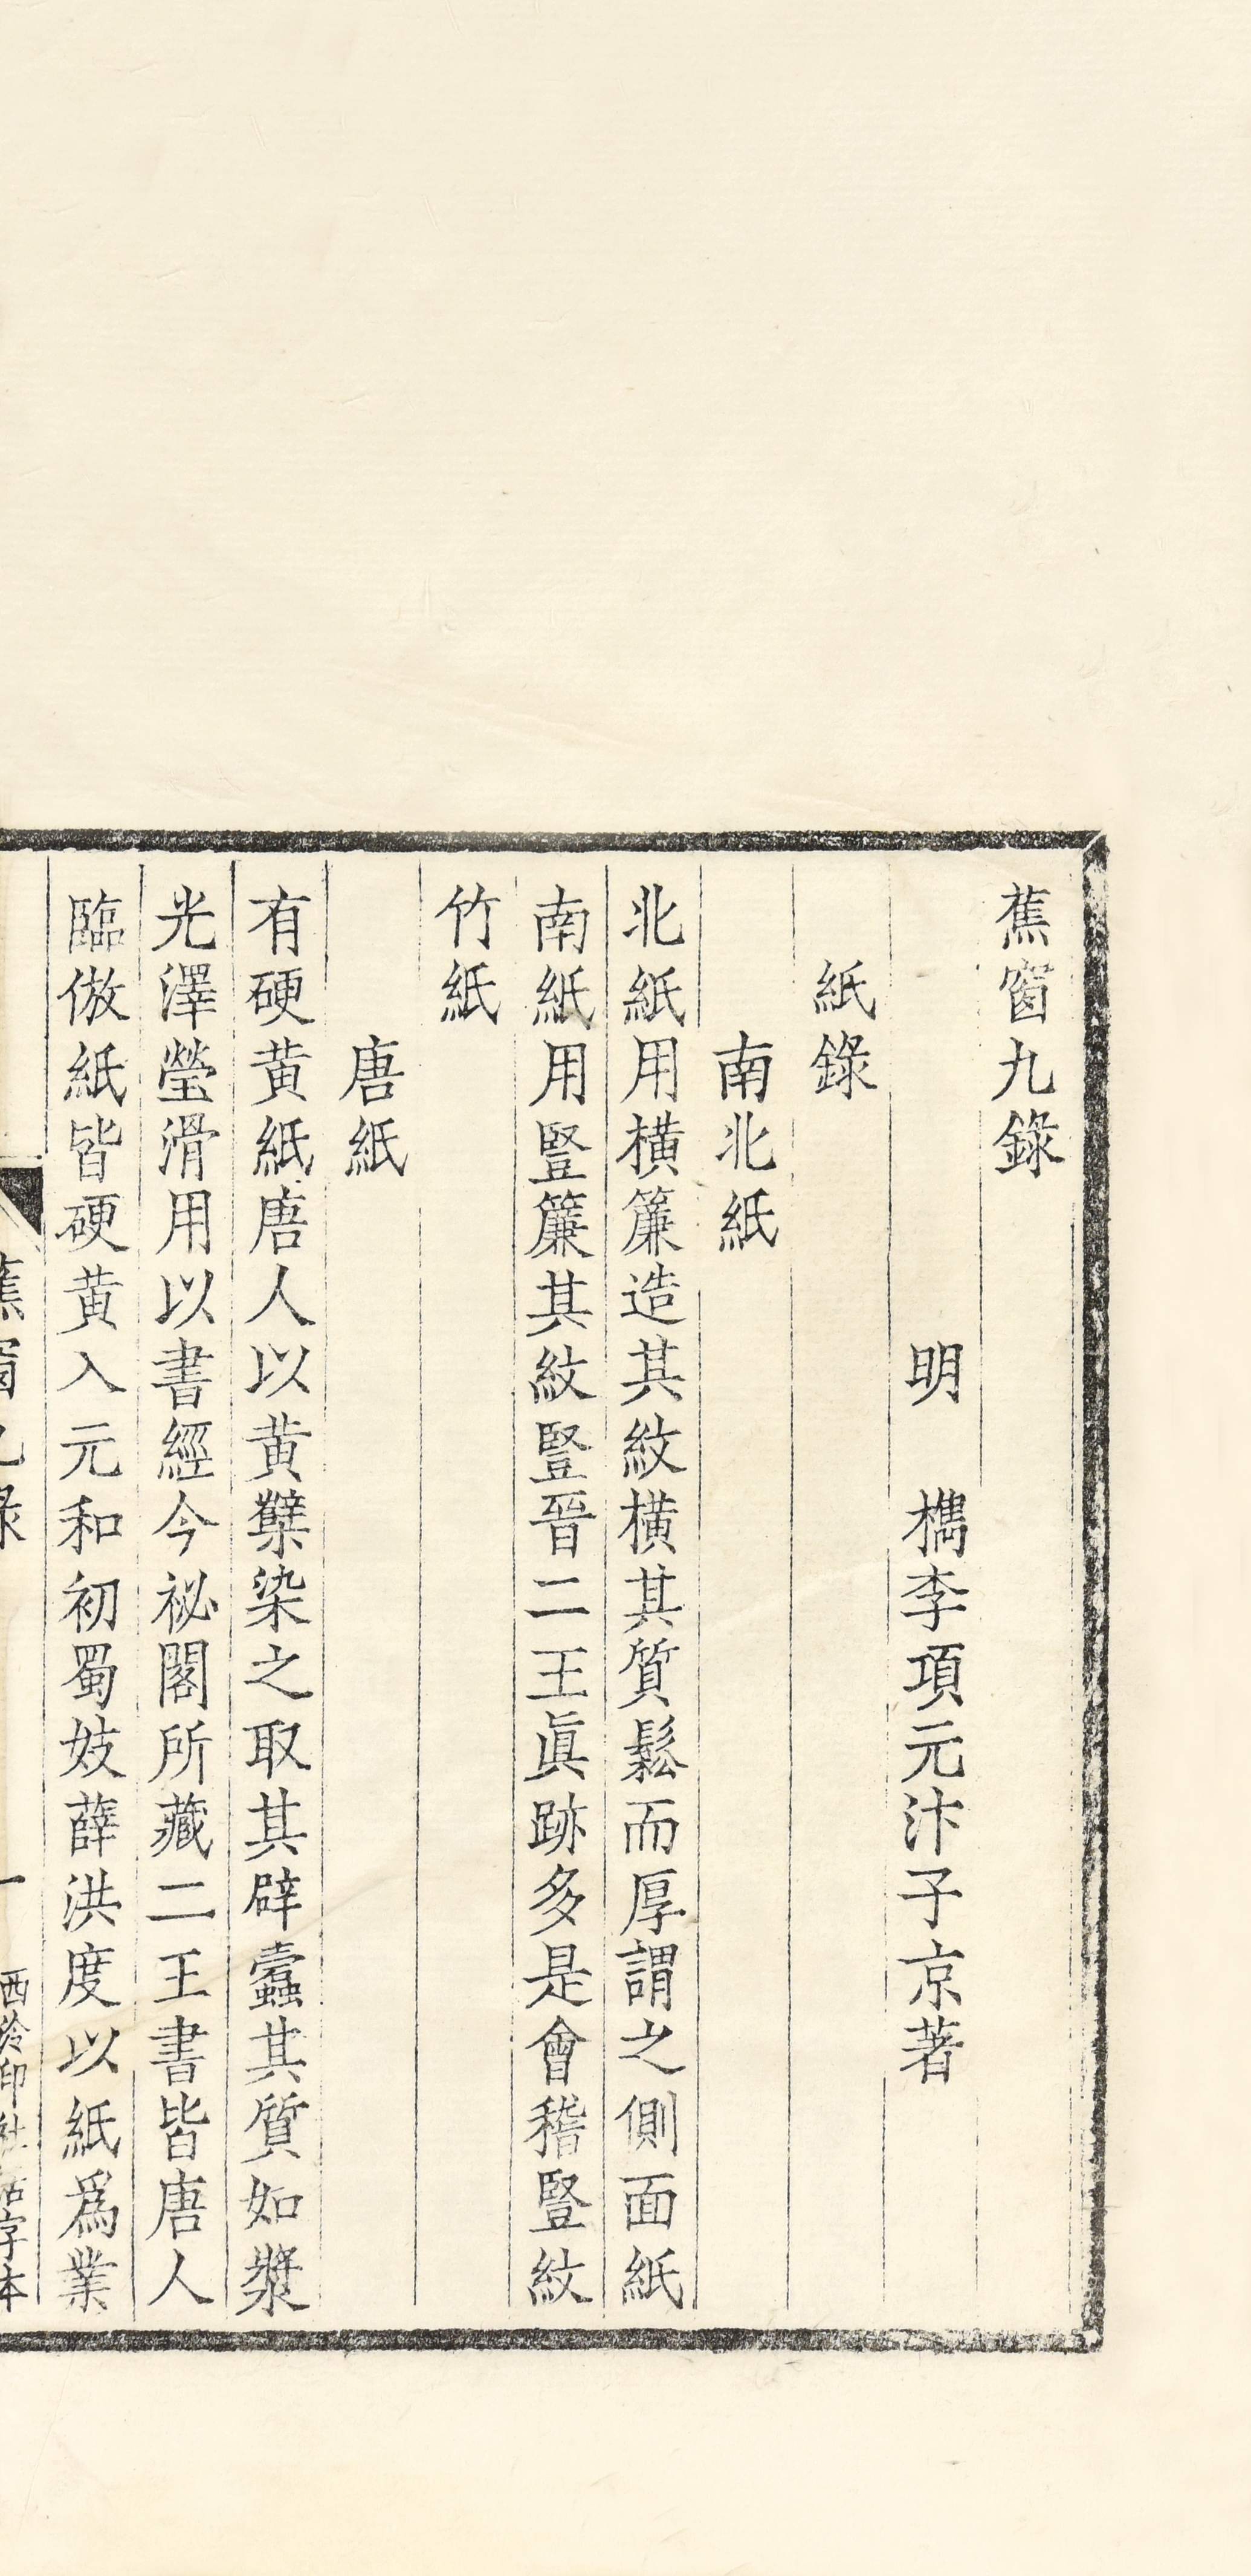 蕉窗九錄
明　檇李項元汴子京著
紙錄
南北紙
北紙用橫簾造其紋橫其質鬆而厚謂之側面紙
南紙用豎簾其紋豎晉二王眞跡多是會稽豎紋
竹紙
唐紙
有硬黃紙唐人以黃蘗染之取其辟蠹其質如漿
光澤瑩滑用以書經今祕閣所藏二王書皆唐人
臨倣紙皆硬黃入元和初蜀妓薛洪度以紙爲業
蕉窗九錄　一　西泠印社活字本